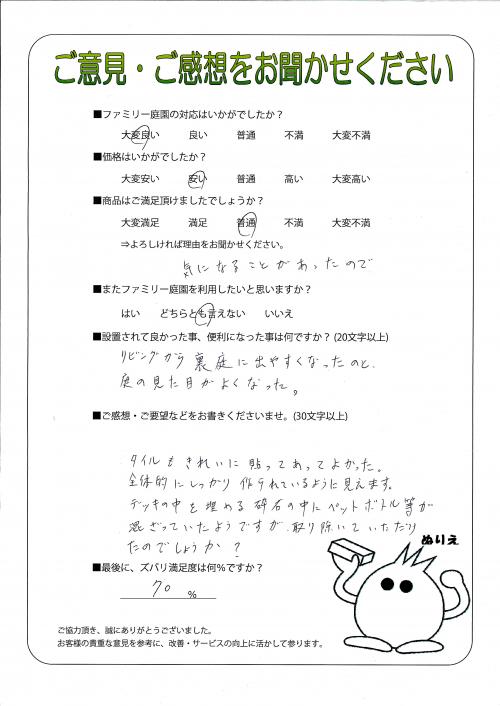 ご意見・ご感想をお聞かせください
■ファミリー庭園の対応はいかがでしたか？
大変良い 良い 普通 不満 大変不満
■価格はいかがでしたか？
大変安い 安い 普通 高い 大変高い
■商品はご満足頂けましたでしょうか？
大変満足 満足 普通 不満 大変不満
⇒よろしければ理由をお聞かせください。
気になることがあったので
■またファミリー庭園を利用したいと思いますか？
はい どちらとも言えない いいえ
■設置されて良かった事、便利になった事は何ですか？(20文字以上)
リビングから裏庭に出やすくなったのと、
庭の見た目がよくなった。
■ご感想・ご要望などをお書きくださいませ。(30文字以上)
タイルもきれいに貼ってあってよかった。
全体的にしっかり作られているように見えます。
デッキの中を埋める砕石の中にペットボトル等が
混ざっていたようですが、取り除いていただけ
たのでしょうか？
ぬりえ
■最後に、ズバリ満足度は何%ですか？
70 %
ご協力頂き、誠にありがとうございました。
お客様の貴重な意見を参考に、改善・サービスの向上に活かして参ります。